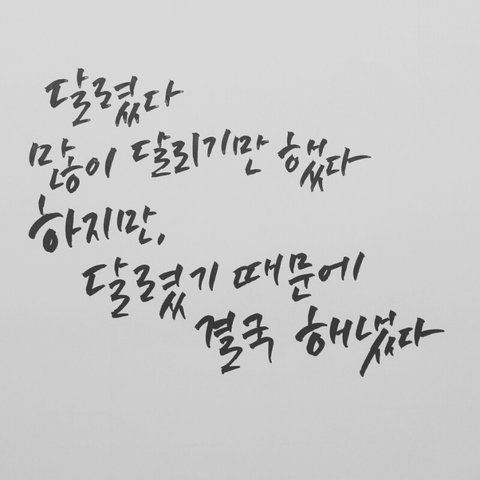 달렸다
많이 달리기만 했다
하지만,
달렸기 때문에
결국 해냈다